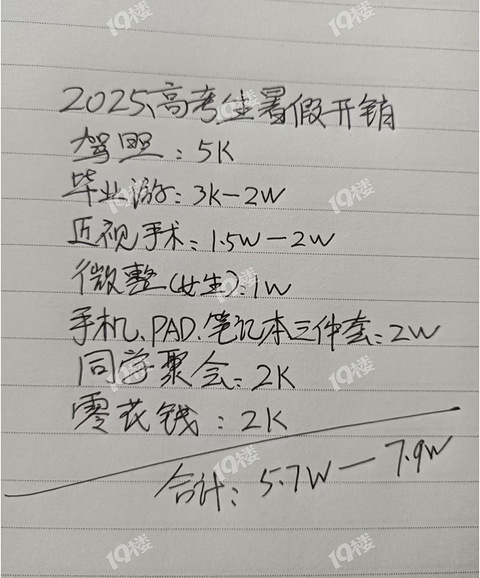 2025高考生暑假开销
驾照：5K
毕业游：3K-2W
近视手术：1.5W-2W
微整(女生)：1W
手机、PAD、笔记本三件套：2W
同学聚会：2K
零花钱：2K
合计：5.7W-7.9W
19楼